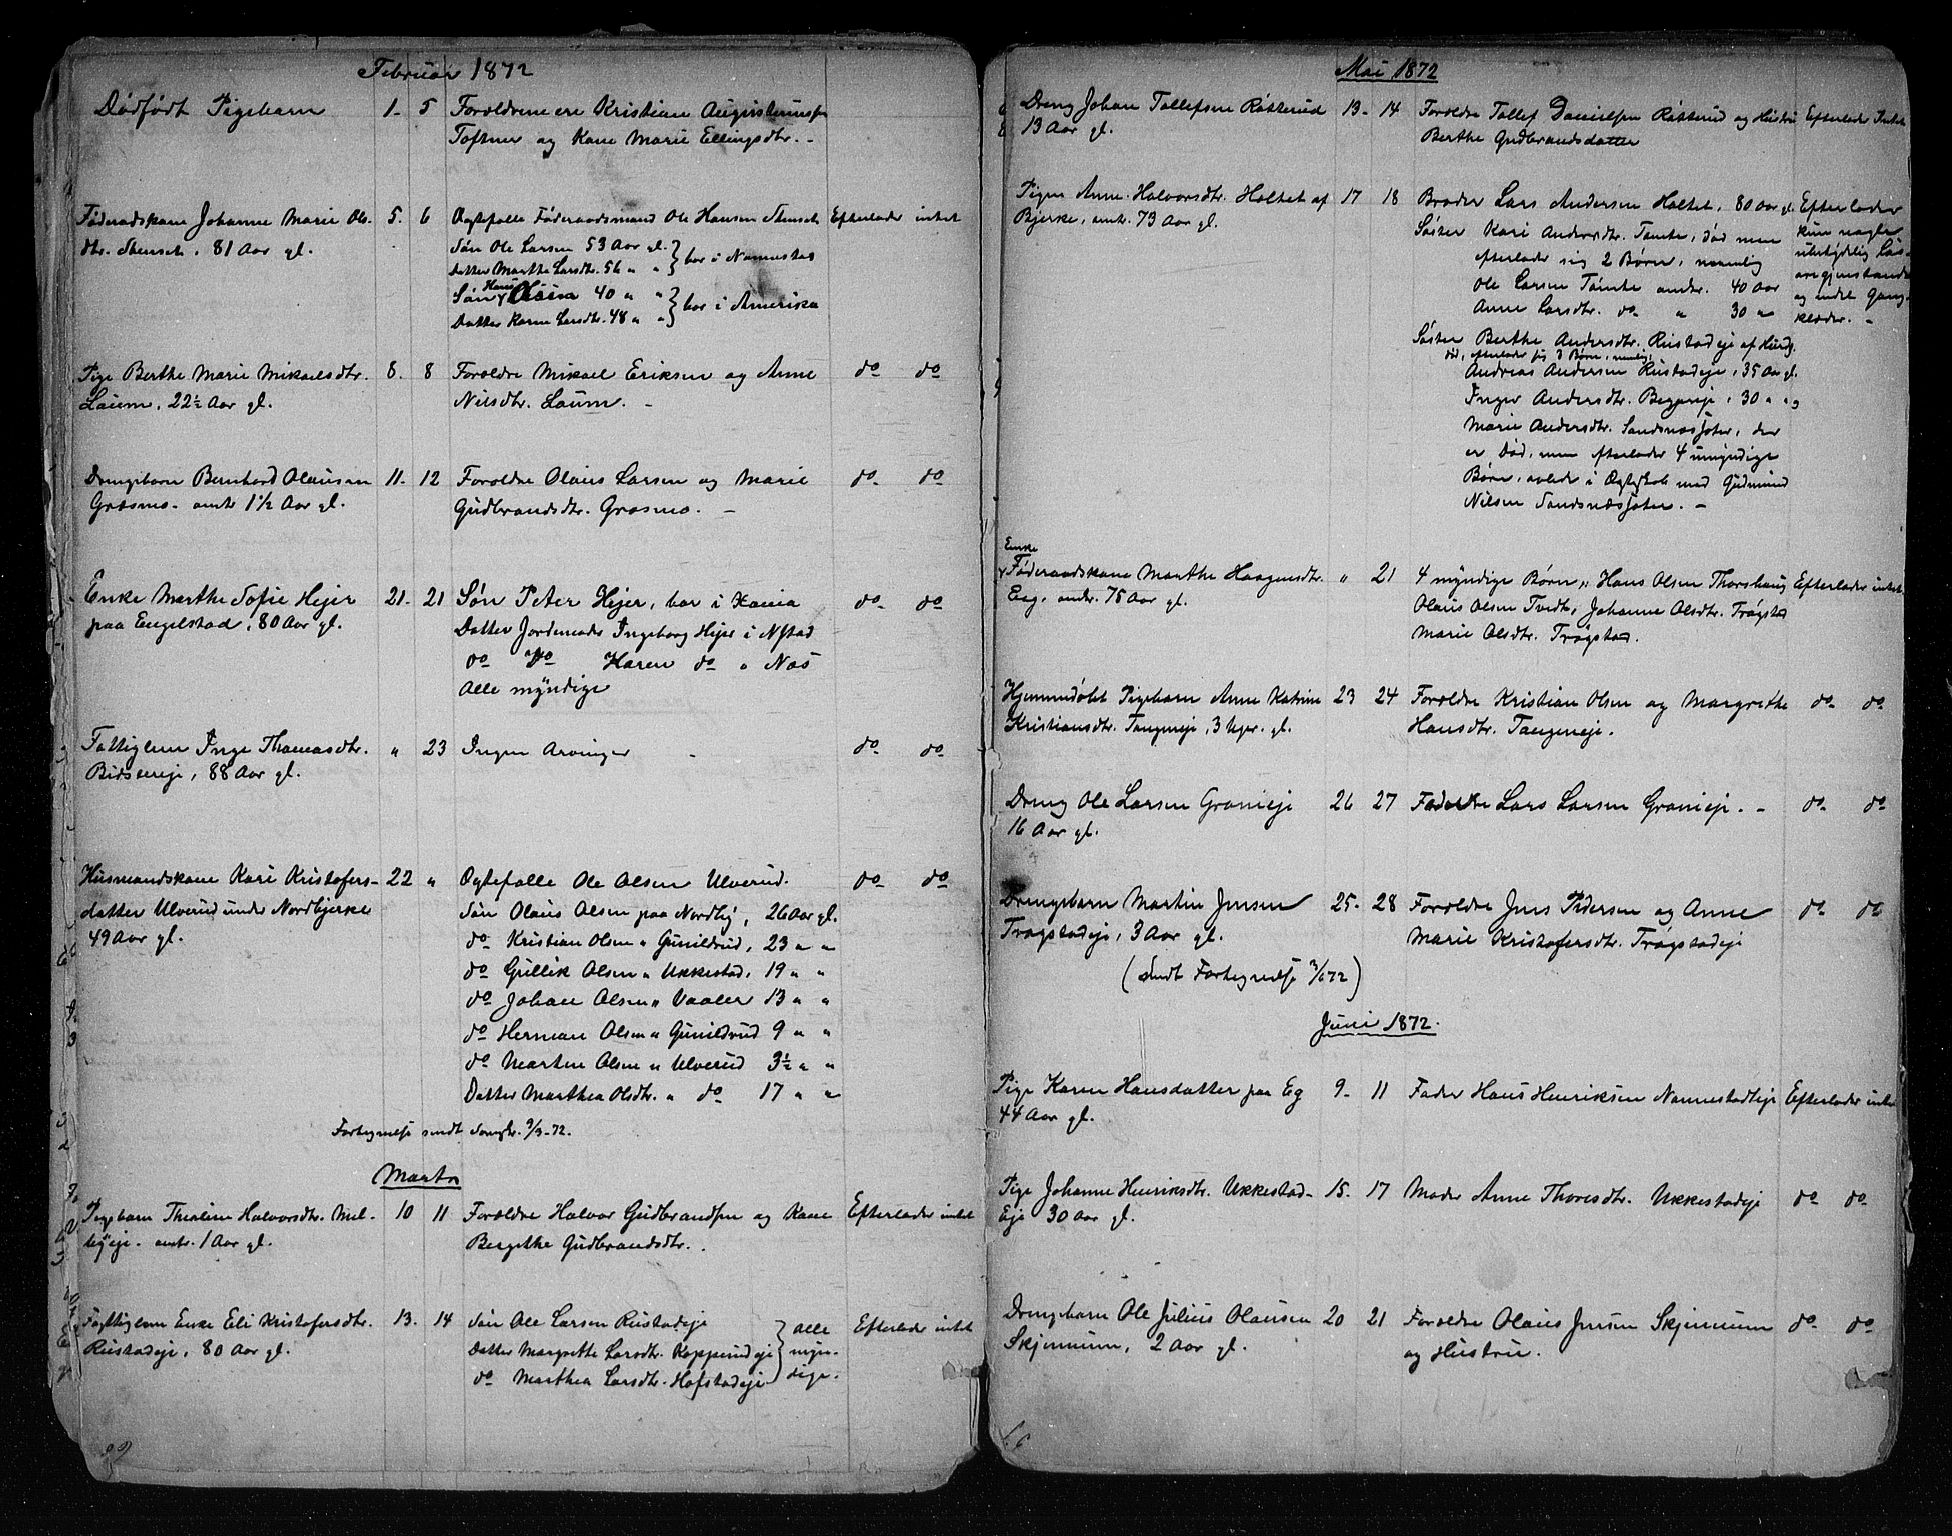 Februar 1872
Dødfødt Pigebarn 1. 5 Forældrene ere Kristian Augustinussen
Toftner og Kone Marie Ellingsdtr. -
Føderaadskone Johanne Marie Ols- 5. 6 Ægtefælle Føderaadsmand Ole Hansen Stenset Efterlader intet
dtr. Stenset, 81 Aar gl. Søn Ole Larsen 53 Aar gl.
Datter Marthe Larsdtr. 56 " " } bor i Nannestad
Søn Hans Olsen 40 " "
Datter Karen Larsdtr. 48 " " } bor i Amerika
Pige Berthe Marie Mikaelsdtr. 8. 8 Forældre Mikael Eriksen og Anne do do
Laum, 22½ Aar gl. Nilsdtr. Laum. -
Drengebarn Bernhard Olausen 11. 12 Forældre Olaus Larsen og Marie do do
Græsmo - omtr 1½ Aar gl. Gudbrandsdtr. Græsmo. -
Enke Marthe Sofie Hejer 21. 21 Søn Peter Hejer, bor i Xania do do
paa Engelstad, 80 Aar gl. Datter Jordemoder Ingeborg Hejer i Nstad
do Do Karen do " Næs
Alle myndige
Fattiglem Inge Thomasdtr. " 23 Ingen Arvinger - do do
Bidsereje, 88 Aar gl.
Husmandskone Kari Kristofers- 22 " Ægtefælle Ole Olsen Ulverud. do do
datter Ulverud under Nordbjerke Søn Olaus Olsen paa Nordby, 26 Aar gl.
49 Aar gl. do Kristian Olsen " Gunildrud, 23 " "
do Gullik Olsen " Ukkestad, 19 " "
do Johan Olsen " Vaaler 13 " "
do Herman Olsen " Gunildrud 9 " "
do Martin Olsen " Ulverud 3½ " "
Datter Marthea Olsdtr. " do 17 " "
Fortegnelse sendt Sorenskr. 9/3-72.
Marts
Pigebarn Thealine Halvorsdtr. Mel- 10 11 Forældre Halvor Gudbrandsen og Kone Efterlader intet
byeje - omtr. 1 Aar gl. Bergithe Gudbrandsdtr.
Fattiglem Enke Eli Kristofersdtr. 13. 14 Søn Ole Larsen Rustadeje } alle Efterlader intet
Rustadeje, 80 Aar gl. Datter Margrethe Larsdtr. Kopperudeje } myn-
do Marthea Larsdtr. Hofstadeje } dige.
Mai 1872
Dreng Johan Tollefsen Røtterud 13. 14 Forældre Tollef Danielsen Røtterud og Hustru Efterlader Intet
13 Aar gl. Berthe Gudbrandsdatter
Pigen Anne Halvorsdtr. Holtet af 17 18 Broder Lars Andersen Holtet, 80 Aar gl. Efterlader
Bjerke, omtr. 73 Aar gl. Søster Kari Andersdtr. Tømte, død men kun nogle
efterlader sig 2 Børn, nemlig ubetydelig Løs-
Ole Larsen Tømte omtr. 40 Aar øregjenstande
Anne Larsdtr. do " 30 " og endel Gang-
klæder. -
Søster Berthe Andersdtr. Rustadeje af Hurdal
død, efterlader sig 3 Børn, nemlig
Andreas Andersen Rustadeje, 35 Aar gl.
Inger Andersdtr. Begereje, 30 " " og
Marie Andersdtr. Sandsnæssæter, der
er Død, men efterlader 4 umyndige
Børn, avlede i Ægteskab med Gudmund
Nilsen Sandsnæssæter. -
Enke
Føderaadskone Marthe Haagensdtr. " 21 4 myndige Børn, Hans Olsen Thorshaug Efterlader intet
Eeg, omtr. 75 Aar gl. Olaus Olsen Tvedt, Johanne Olsdtr. Trøgstad
Marie Olsdtr. Trøgstad.
Hjemmedøbt Pigebarn Anne Katrine 23 24 Forældre Kristian Olsen og Margrethe do do
Kristiansdtr. Tangeneje, 3 Uger gl. Hansdtr. Tangeneje.
Dreng Ole Larsen Granieje 26 27 Fader Lars Larsen Granieje. - do do
16 Aar gl.
Drengebarn Martin Jensen 25. 28 Forældre Jens Pedersen og Anne do do
Trøgstadeje, 3 Aar gl. Marie Kristofersdtr. Trøgstadeje
(Sendt Fortegnelse 3/6 72)
Juni 1872.
Pige Karen Hansdatter paa Eg 9. 11 Fader Hans Henriksen Nannestadeje Efterlader intet
44 Aar gl.
Pige Johanne Henriksdtr. Ukkestad- 15. 17 Moder Anne Thoresdtr. Ukkestadeje do do
Eje 30 Aar gl.
Drengebarn Ole Julius Olausen 20 21 Forældre Olaus Jensen Skjennum do do
Skjennum, 2 Aar gl. og Hustru.